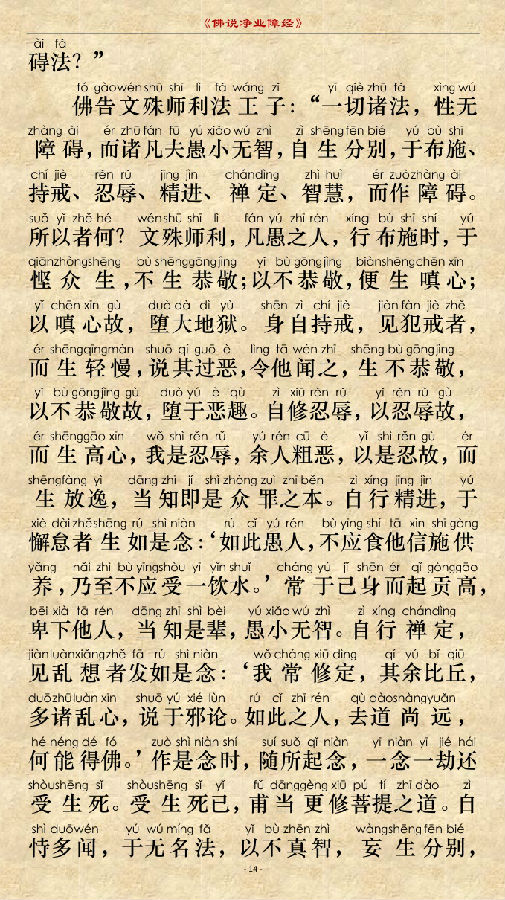 《佛说净业障经》
ài fǎ
碍法？”
fó gào wén shū shī lì fǎ wáng zǐ yí qiè zhū fǎ xìng wú
佛告文殊师利法王子：“一切诸法，性无
zhàng ài ér zhū fán fū yú xiǎo wú zhì zì shēng fēn bié yú bù shī
障碍，而诸凡夫愚小无智，自生分别，于布施、
chí jiè rěn rǔ jīng jìn chán dìng zhì huì ér zuò zhàng ài
持戒、忍辱、精进、禅定、智慧，而作障碍。
suǒ yǐ zhě hé wén shū shī lì fán yú zhī rén xíng bù shī shí yú
所以者何？文殊师利，凡愚之人，行布施时，于
qiān zhòng shēng bù shēng gōng jìng yǐ bù gōng jìng biàn shēng chēn xīn
悭众生，不生恭敬；以不恭敬，便生嗔心；
yǐ chēn xīn gù duò dà dì yù shēn zì chí jiè jiàn fàn jiè zhě
以嗔心故，堕大地狱。身自持戒，见犯戒者，
ér shēng qīng màn shuō qí guò è lìng tā wén zhī shēng bù gōng jìng
而生轻慢，说其过恶，令他闻之，生不恭敬，
yǐ bù gōng jìng gù duò yú è qù zì xiū rěn rǔ yǐ rěn rǔ gù
以不恭敬故，堕于恶趣。自修忍辱，以忍辱故，
ér shēng gāo xīn wǒ shì rěn rǔ yú rén cū è yǐ shì rěn gù ér
而生高心，我是忍辱，余人粗恶，以是忍故，而
shēng fàng yì dāng zhī jí shì zhòng zuì zhī běn zì xíng jīng jìn yú
生放逸，当知即是众罪之本。自行精进，于
xiè dài zhě shēng rú shì niàn rú cǐ yú rén bù yīng shí tā xìn shī gòng
懈怠者生如是念：‘如此愚人，不应食他信施供
yǎng nǎi zhì bù yīng shòu yì yǐn shuǐ cháng yú jǐ shēn ér qǐ gòng gāo
养，乃至不应受一饮水。’常于己身而起贡高，
bēi xià tā rén dāng zhī shì bèi yú xiǎo wú zhì zì xíng chán dìng
卑下他人，当知是辈，愚小无智。自行禅定，
jiàn luàn xiǎng zhě fā rú shì niàn wǒ cháng xiū dìng qí yú bǐ qiū
见乱想者发如是念：‘我常修定，其余比丘，
duō zhū luàn xīn shuō yú xié lùn rú cǐ zhī rén qù dào shàng yuǎn
多诸乱心，说于邪论。如此之人，去道尚远，
hé néng dé fó zuò shì niàn shí suí suǒ qǐ niàn yí niàn yì jié hái
何能得佛。’作是念时，随所起念，一念一劫还
shòu shēng sǐ shòu shēng sǐ yǐ fǔ dāng gèng xiū pú tí zhī dào zì
受生死。受生死已，甫当更修菩提之道。自
shì duō wén yú wú míng fǎ yǐ bù zhēn zhì wàng shēng fēn bié
恃多闻，于无名法，以不真智，妄生分别，
- 14 -